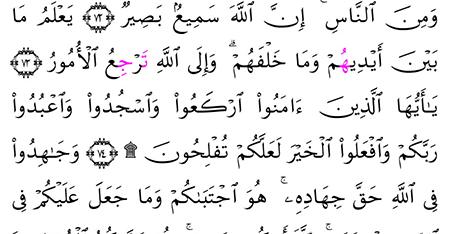 وَمِنَ ٱلنَّاسِ ۚ إِنَّ ٱللَّهَ سَمِيعٌۢ بَصِيرٌ ٧٢ يَعْلَمُ مَا
بَيْنَ أَيْدِيهُمْ وَمَا خَلْفَهُمْ ۗ وَإِلَى ٱللَّهِ تَرْجِعُ ٱلْأُمُورُ ٧٣
يَٰٓأَيُّهَا ٱلَّذِينَ ءَامَنُوا۟ ٱرْكَعُوا۟ وَٱسْجُدُوا۟ وَٱعْبُدُوا۟
رَبَّكُمْ وَٱفْعَلُوا۟ ٱلْخَيْرَ لَعَلَّكُمْ تُفْلِحُونَ ۩ ٧٤ وَجَٰهِدُوا۟
فِى ٱللَّهِ حَقَّ جِهَادِهِۦ ۚ هُوَ ٱجْتَبَىٰكُمْ وَمَا جَعَلَ عَلَيْكُمْ فِى